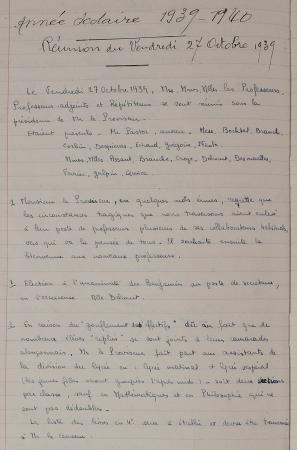 Année Scolaire 1939-1940
Réunion du Vendredi 27 Octobre 1939
Le Vendredi 27 Octobre 1939, Mrs, Mmes, Mlles les Professeurs,
Professeurs adjoints et Répétiteurs se sont réunis sous la
présidence de Mr le Proviseur.
Etaient présents - Mr Pastor, censeur - Mrs.
Mmes, Mlles
1 Monsieur le Proviseur, en quelques mots émus, regrette que
les circonstances tragiques que nous traversons aient enlevé
à leur poste de professeurs plusieurs de ses collaborateurs
ceux qui a la pensée de tous. Il souhaite ensuite la
bienvenue aux nouveaux professeurs.
Election à l'unanimité des Benjamin au poste de secrétaire,
en l'occurence Mlle
En raison du "gonflement des effectifs" dû au fait que de
nombreux élèves "repliés" se sont joints à leurs camarades
Mr le Proviseur fait part aux assistants de
la division du lycée en : lycée matinal et lycée vespéral
(les jeunes filles l'après midi) - soit deux sections
par classe, sauf en Mathématiques et en Philosophie qui ne
sont pas dédoublées.
La liste des livres en sera établie et devra être transmise
à Mr le Censeur.